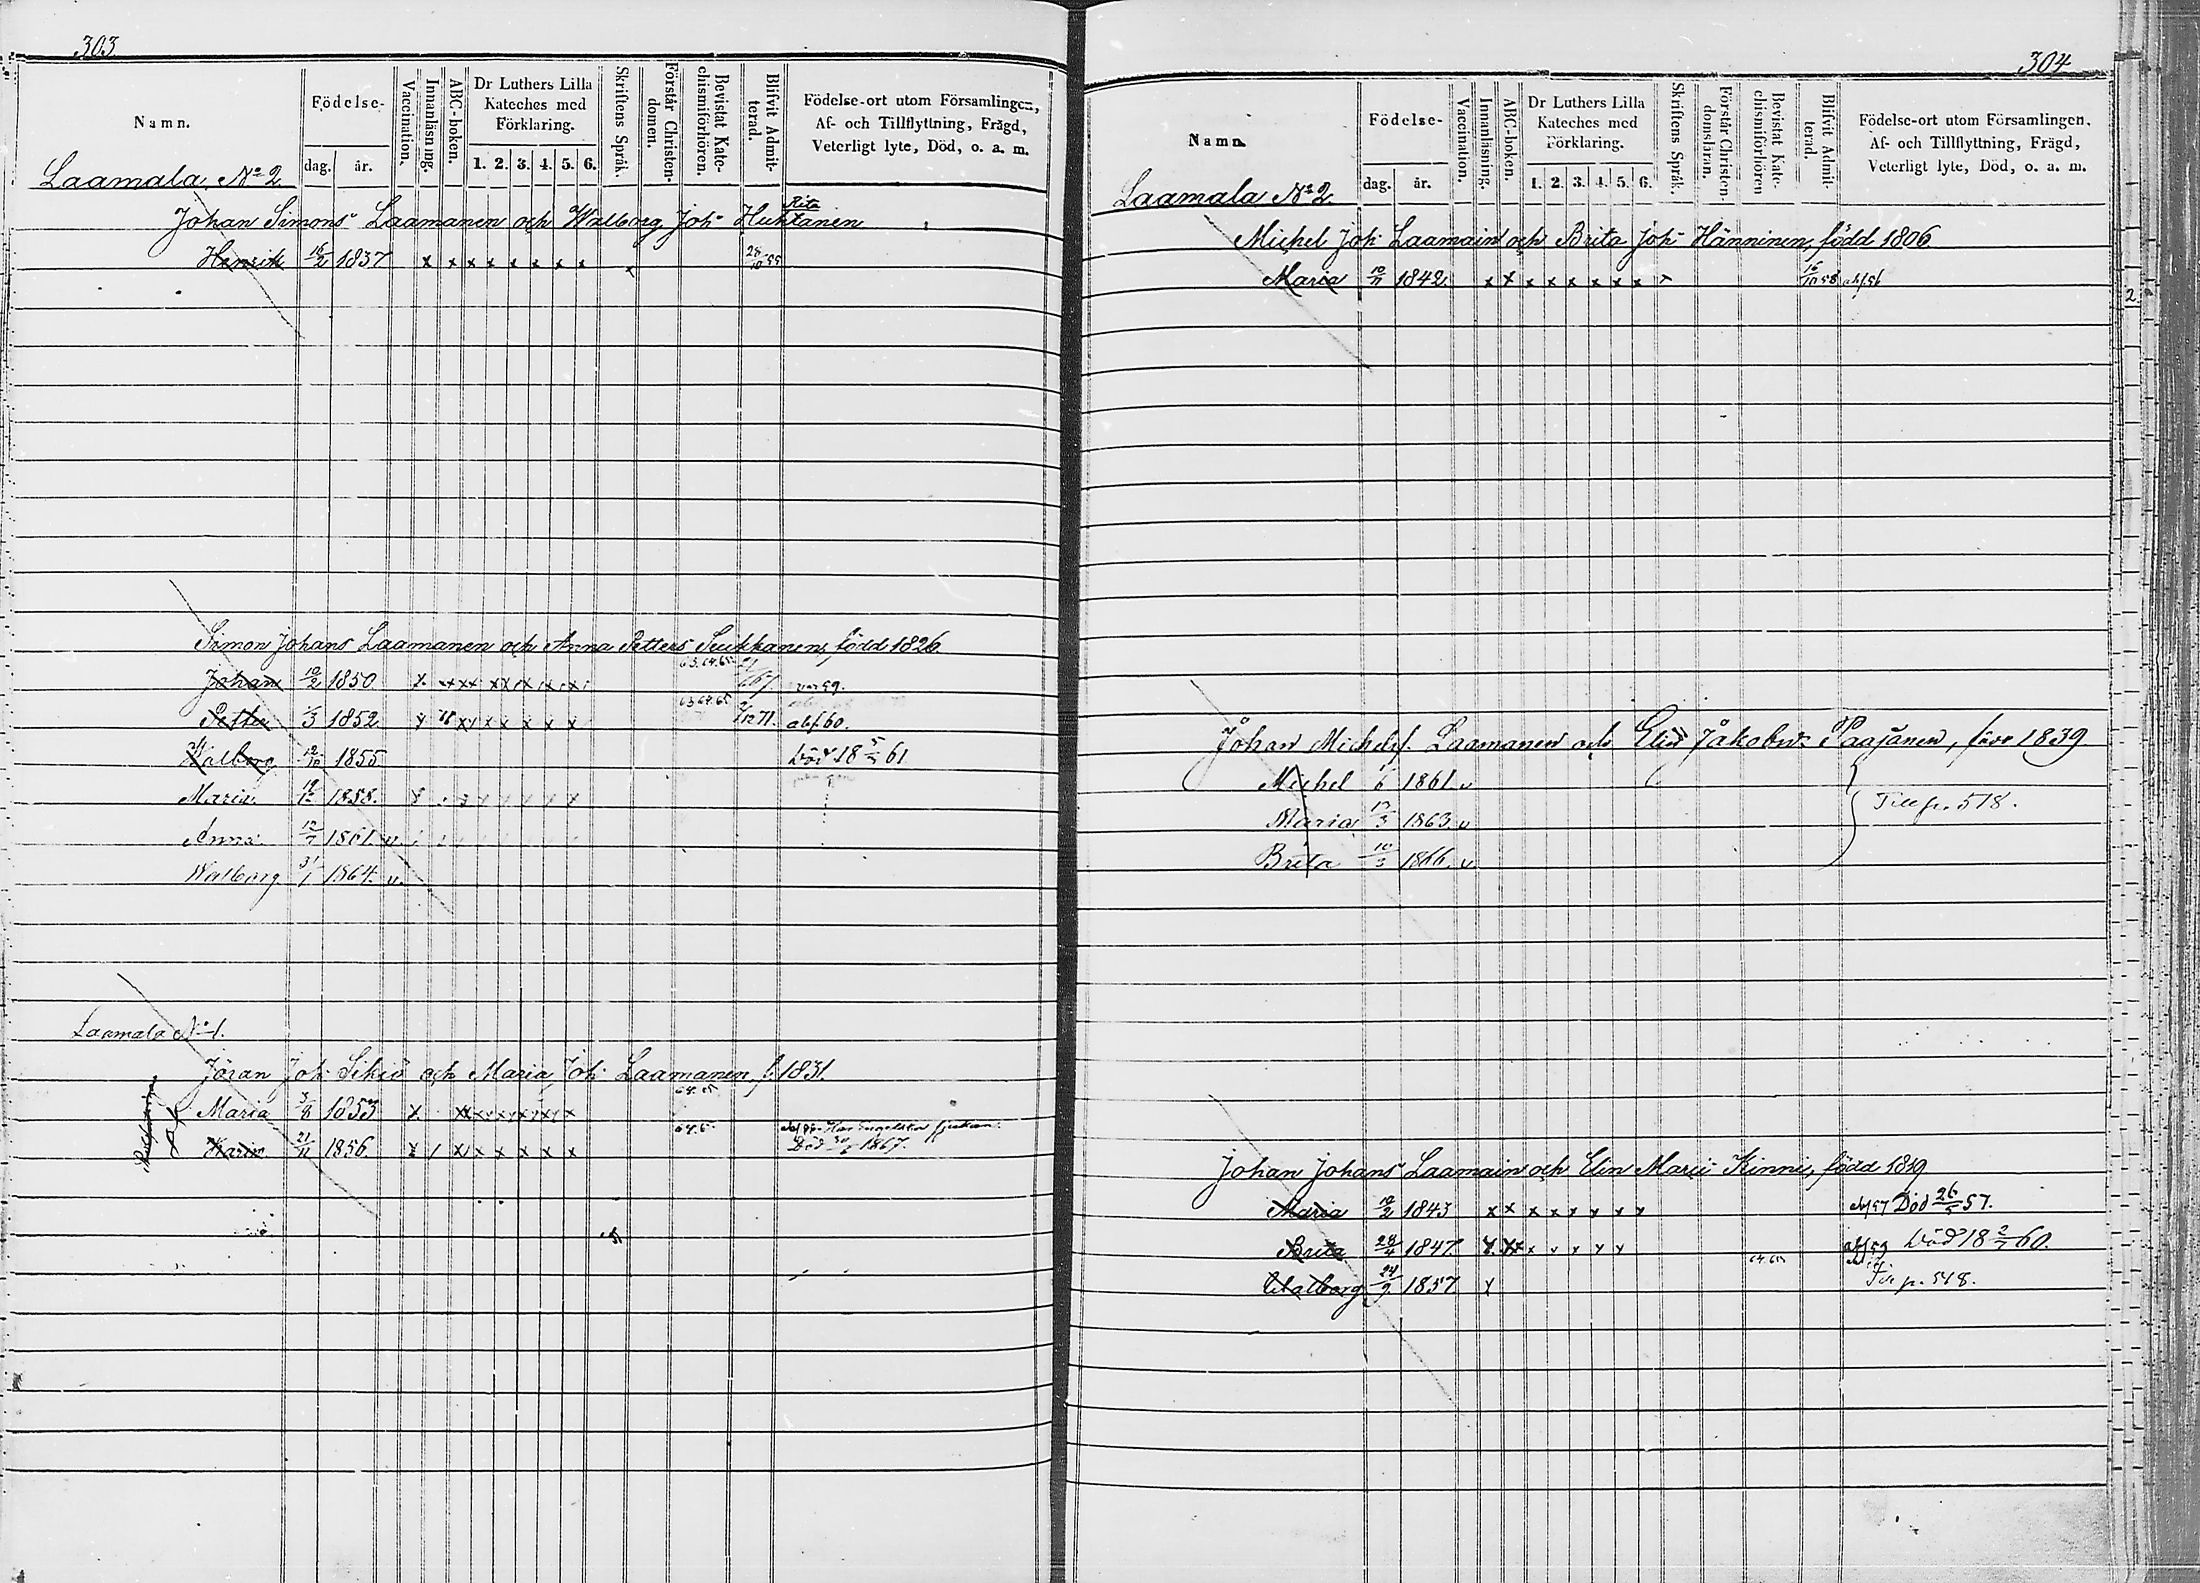 303
Namn. Födelse- dag. år. Vaccination. Innanläsning. ABC-boken. Dr Luthers Lilla Kateches med Förklaring. 1. 2. 3. 4. 5. 6. Skriftens Språk. Förstår Christendomen. Bevistat Katechismiförhören. Blifvit Admitterad. Födelse-ort utom Församlingen, Af- och Tillflyttning, Frägd, Veterligt lyte, Död, o. a. m.
Laamala No 2
Rita
Johan Simons Laamanen och Walborg Joh Huhtanen
Henrik 16/2 1837 x x x x x x x x x 28/10 55
Simon Johans Laamanen och Anna Petters Suikkanen, född 1826.
63.64.65
Johan 10/2 1850
63 64 65
Petter 1/3 1852 71. abf. 60.
Walborg 12/10 1855 Död 18 5/5 61
Maria 1858.
Anna 12/7 1861. v.
Walborg 31/1 1864. v.
Laamala No 1.
Jöran Joh Sikiö och Maria Joh Laamanen, f. 1831.
Maria 3/8 1853 x
Karin 21/11 1856. Död 1867.
304
Namn. Födelse- dag. år. Vaccination. Innanläsning. ABC-boken. Dr Luthers Lilla Kateches med Förklaring. 1. 2. 3. 4. 5. 6. Skriftens Språk. Förstår Christendomsläran. Bevistat Katechismiförhören Blifvit Admitterad. Födelse-ort utom Församlingen, Af- och Tillflyttning, Frägd, Veterligt lyte, Död, o. a. m.
Laamala No 2.
Michel Joh Laamain och Brita Joh Hänninen, född 1806
Maria 10/11 1842 x x x x x x x x x 16/10 58 abf. 56
Johan Michelsf. Laamanen och Elin Jakobs Paajanen, född 1839
Michel 1/6 1861. v
Maria 1863. v
Brita 10/3 1866. v
Till p. 518.
Johan Johans Laamain och Elin Marie Kinni, född 1819
Maria 12/2 1843 x x x x x x x x abf 57 Död 26/5 57.
Brita 28/4 1847 abf 59 Död 18 2/7 60.
64.65
Walborg 24/9 1857 x p. 548.
2